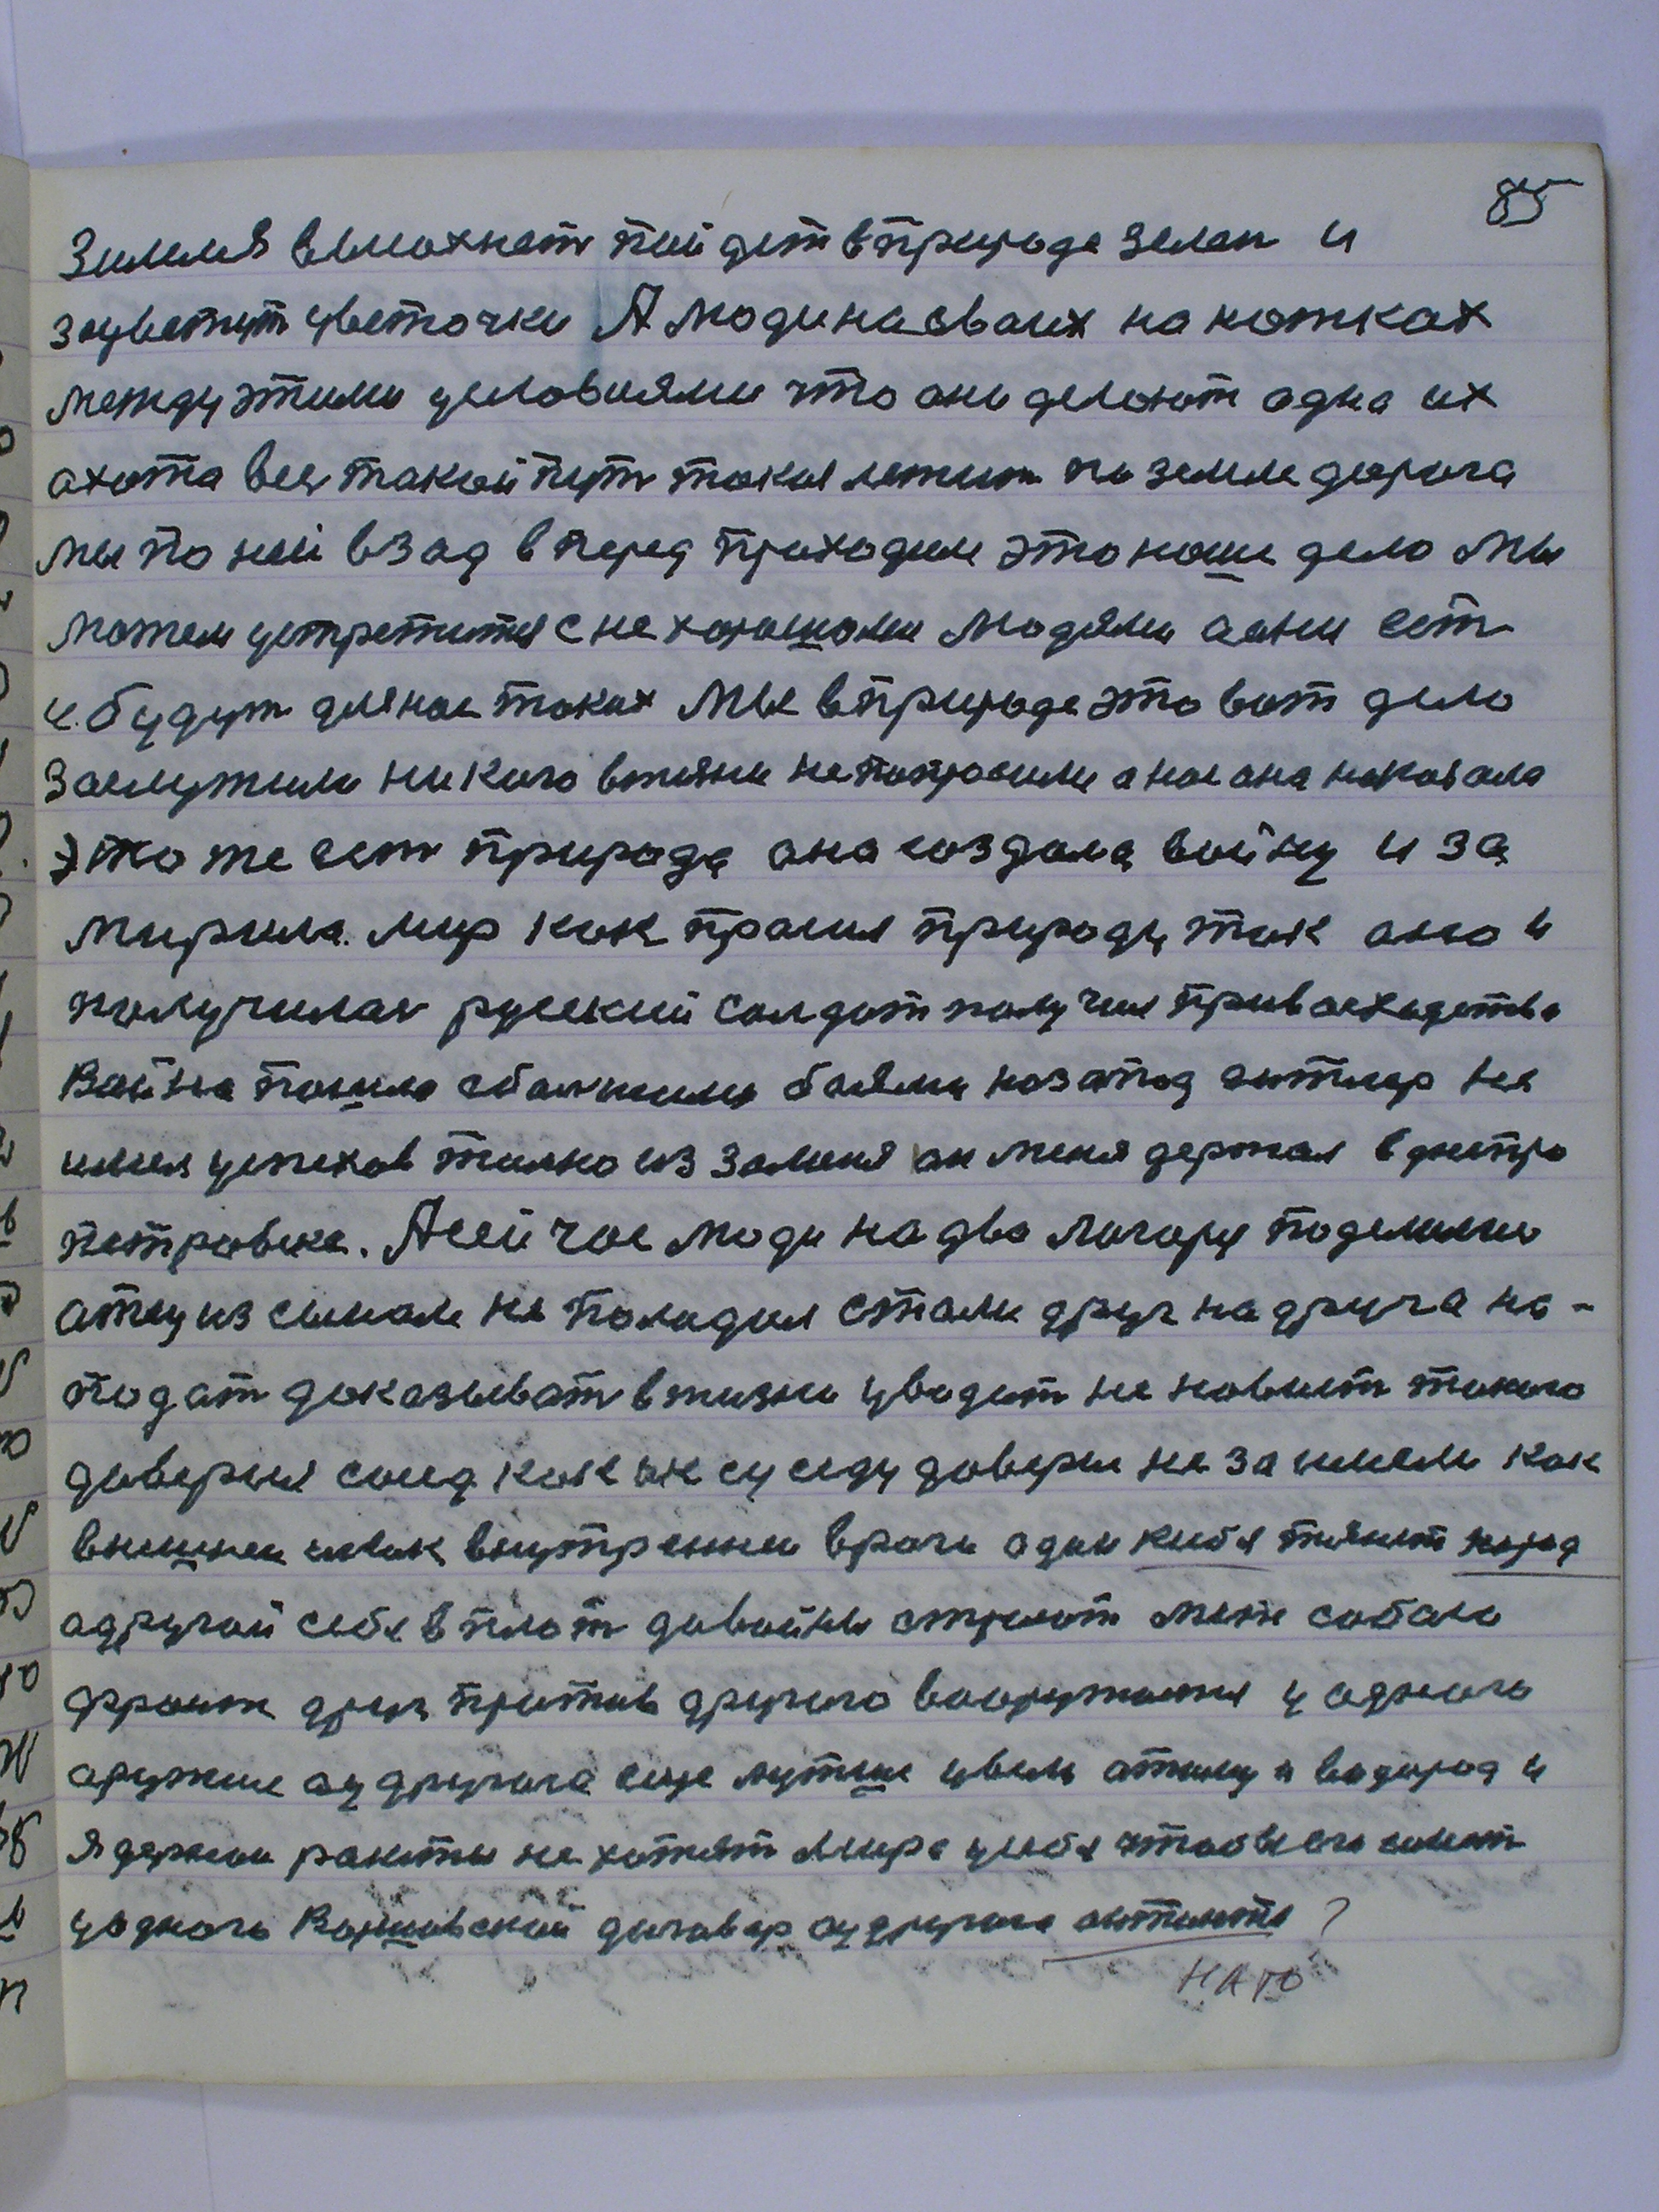 85
Зимля вымохнет пойдет в природе зелен и
зацветут цветочки А люди на своих на ножках
между этими условиями что они делают одна их
ахота вся такой пут такая лежит по земле дорога
мы по ней взад вперед приходим это наше дело мы
можем устретится с не хорошими людями а они ест
и будут для нас таких Мы в природе это вот дело
заслужили ни кого в жизни не попросили а нас она наказала
это же ест природа она создала войну и за
мирила. мир как просил природу так оно и
получилас русский солдат получил привосходство
Война пошла с большими боями на запад гитлер не
имел успехов толко из за меня он меня держал в днепро
петровске. А сейчас люди на два лагеря поделилис
атец из сыном не поладил стали друг на друга на-
подат доказыват в жизни уводит не новист такого
доверия сосед как он суседу доверия не заимели как
внешнеи так внутреннеи враги один себя тянит назад
а другой себя в плот до войны строют меж собою
фронт друг против другого вооружился у одного
оружие а у другого еще лутше увели атому и водород и
ядернои ракеты не хотят мира у себя чтобы его имет
у одного Варшавский договор а у другого антанта ?
НАТО